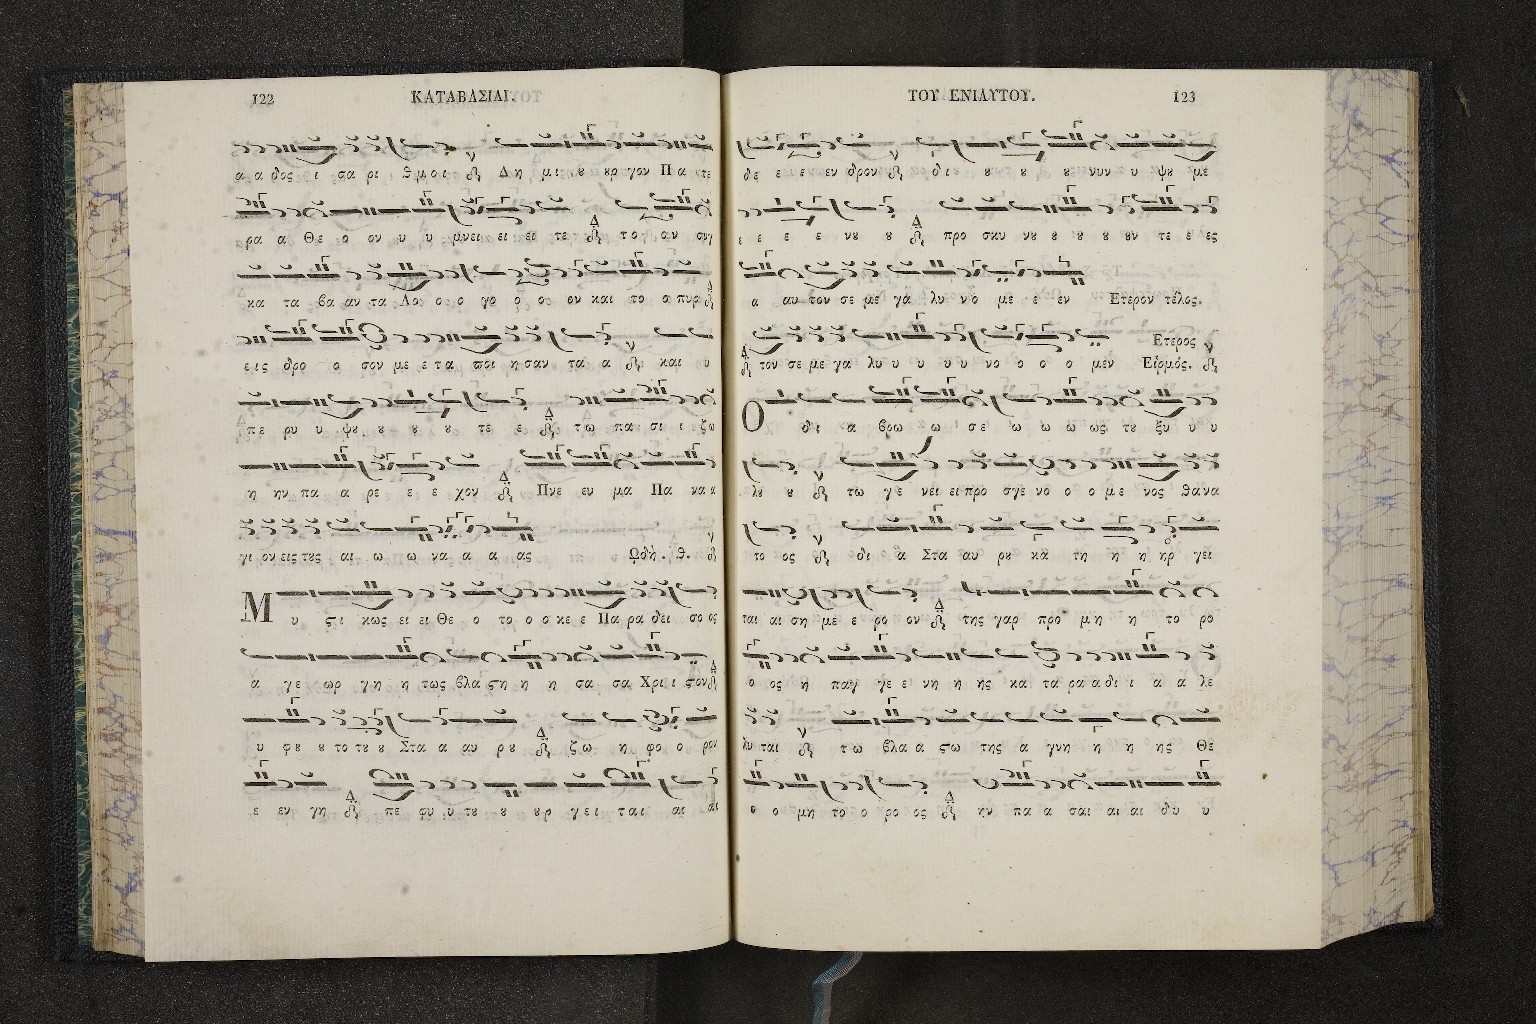 122 ΚΑΤΑΒΑΣΙΑΙ.
α α δος ι σα ρι θμοι Δη μι ȣ ȣρ γον Πα τε
ρα α Θε ο ον υ υ μνει ει ει τε το ον συγ
κα τα βα αν τα Λο ο ο γο ο ο ον και το ο πυρ
εις δρο ο σον με ε τα ποι η σαν τα α και υ
πε ρυ υ ψȣ ȣ ȣ ȣ τε ε τω πα σι ι ζω
η ην πα α ρε ε ε χον Πνε ευ μα Πα να α
γι ον εις τȣς αι ω ω να α α ας Ωδη. θ.
Μ υ στι κως ει ει Θε ο το ο ο κε ε Πα ρα δει σο ος
α γε ωρ γη η τως βλα ςη η η σα σα Χρι ι ςον
υ φȣ ȣ το τȣ ȣ Στα α αυ ρȣ ζω η φο ο ρον
ε εν γη πε φυ υ τȣ ȣ ȣρ γει ται αι αι
ΤΟΥ ΕΝΙΑΥΤΟΥ. 123
δε ε ε εν δρον δι ȣ ȣ ȣ νυν υ ψȣ με
ε ε ε ε νȣ ȣ προ σκυ νȣ ȣ ȣ ȣ ȣν τε ε ες
α αυ τον σε με γα λυ νο με ε εν Ετερον τέλος.
Ετερος
τον σε με γα λυ υ υ υ υ νο ο ο ο μεν Εἱρμός.
Ο δι α βρω ω σε ω ω ω ως τȣ ξυ υ υ
λȣ ȣ τω γε νει ει προ σγε νο ο ο με νος θανα
το ος δι α Στα αυ ρȣ κα τη η η ηρ γει
ται αι ση με ε ρο ον της γαρ προ μη η το ρο
ο ος η παγ γε ε νη η ης κα τα ρα α δι ι α α λε
λυ ται τω βλα α ςω της α γνη η η ης Θε
ο ο μη το ο ρο ος ην πα α σαι αι αι δυ υ